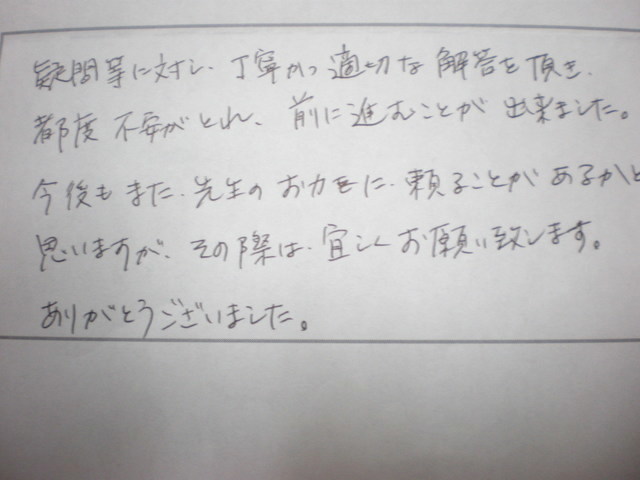 疑問等に対し、丁寧かつ適切な解答を頂き、
都度不安がとれ、前に進むことが出来ました。
今後もまた、先生のお力をに、頼ることがあるかと
思いますが、その際は、宜しくお願い致します。
ありがとうございました。